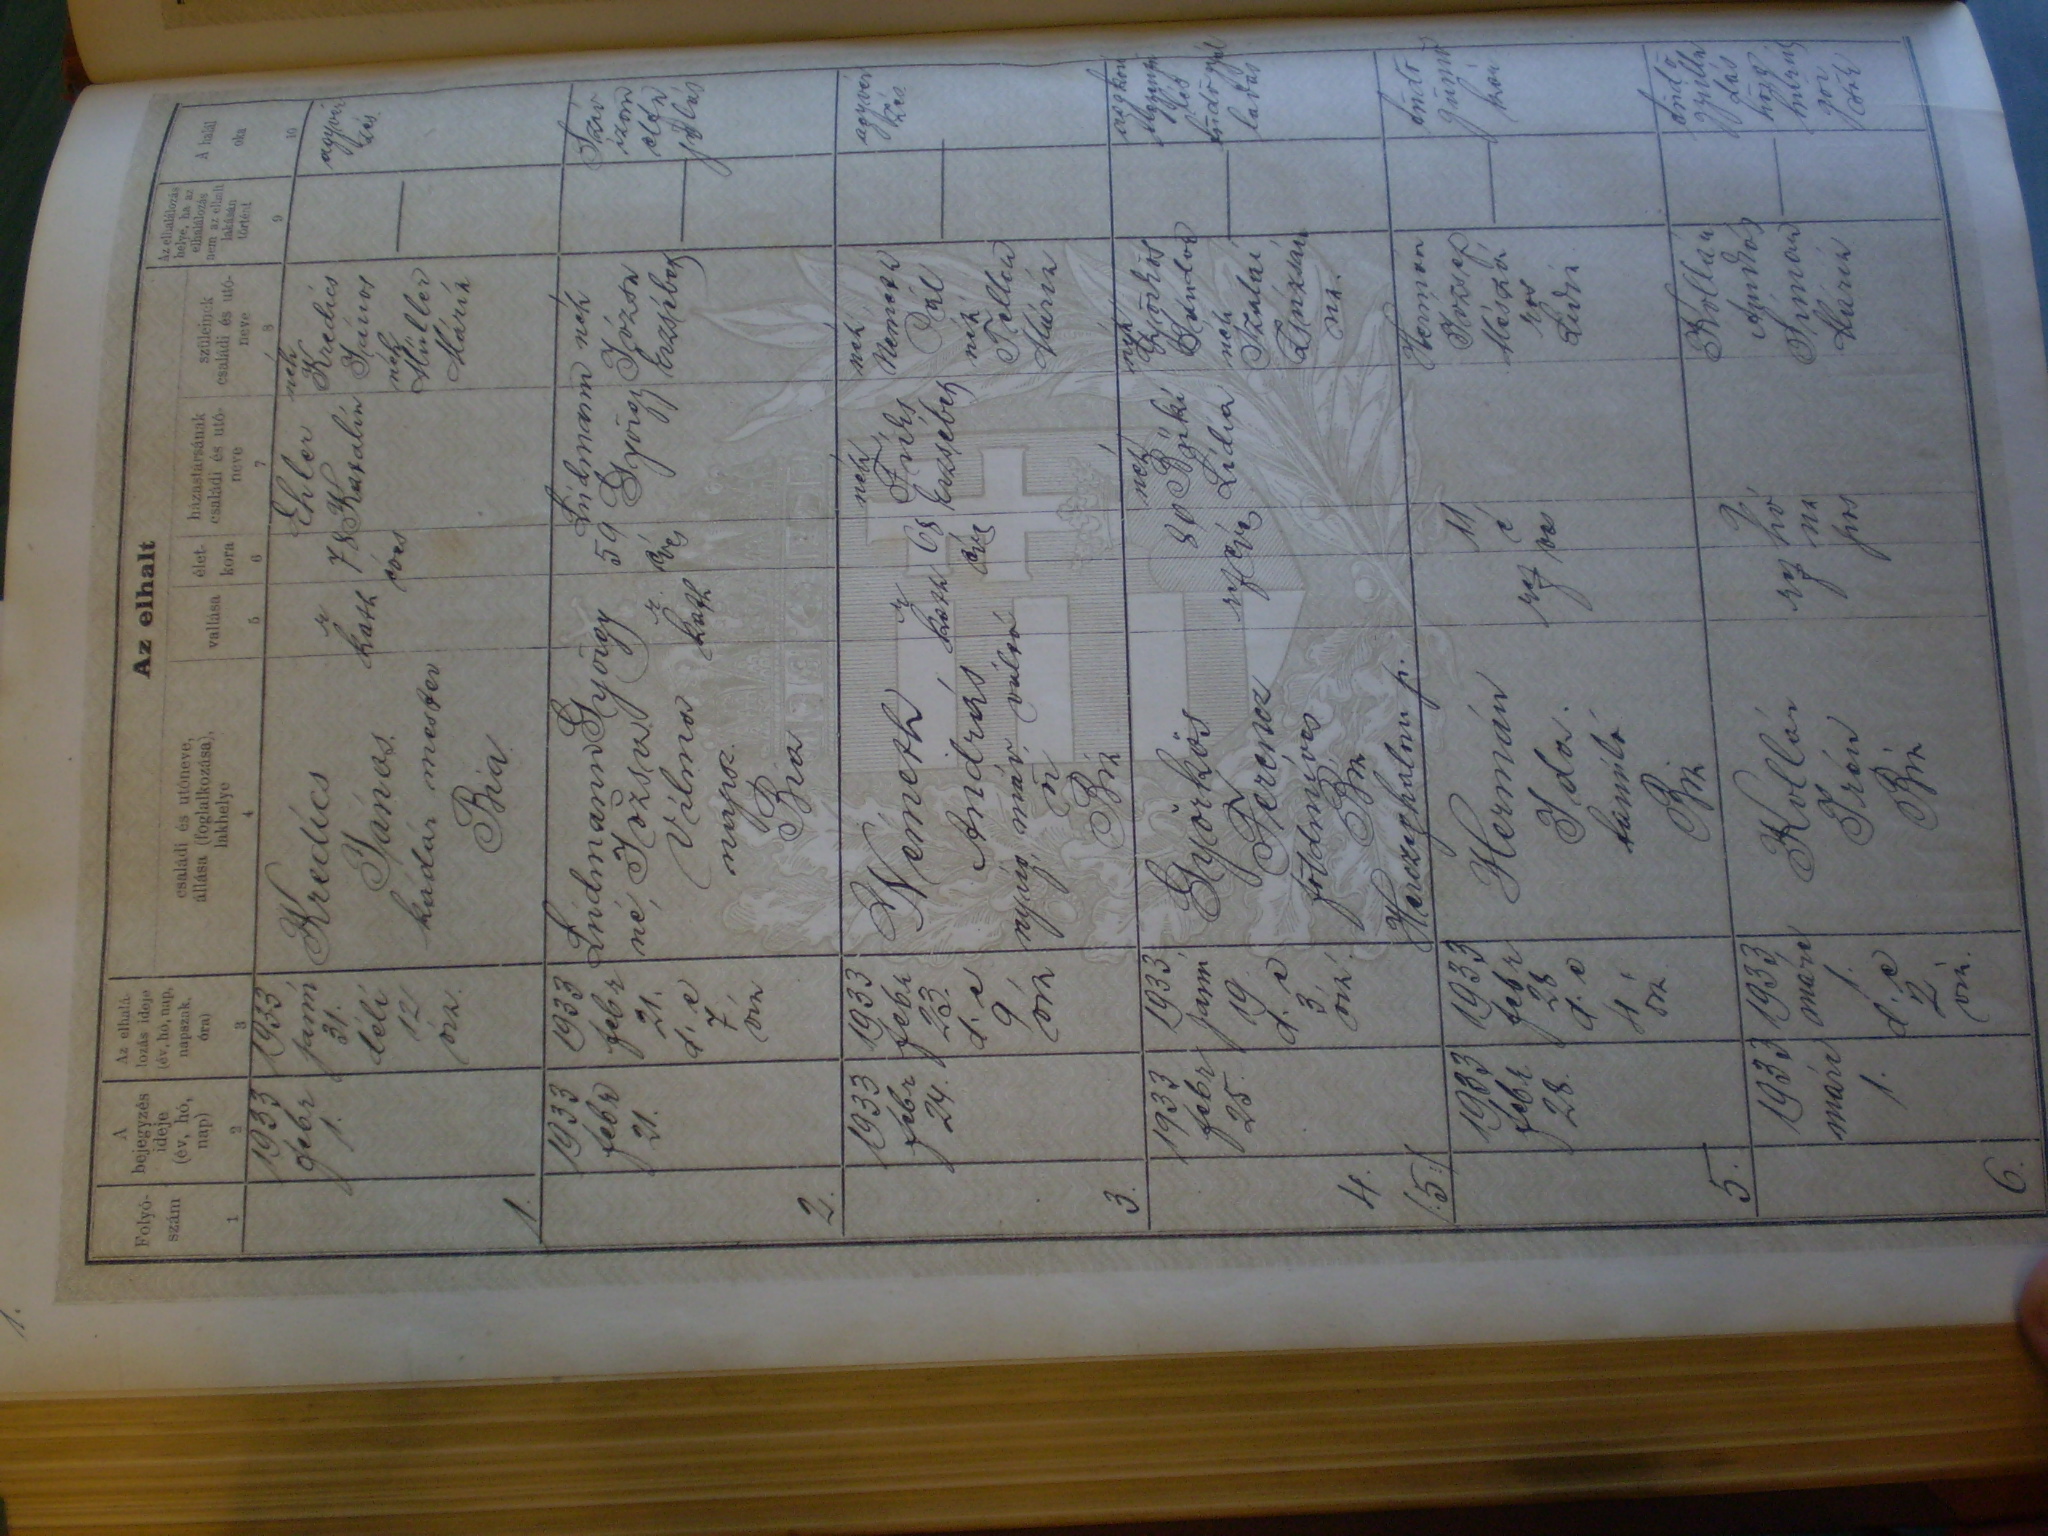 1.
Az elhalt
Folyó-
szám
A
bejegyzés
ideje
(év, hó,
nap)
Az elhalá-
lozás ideje
(év, hó, nap,
napszak,
óra)
családi és utóneve,
állása (foglalkozása),
lakhelye
vallása
élet-
kora
házastársának
családi és utó-
neve
szüleinek
családi és utó-
neve
Az elhalálozás
helye, ha az
elhalálozás
nem az elhalt
lakásán
történt
A halál
oka
1
2
3
4
5
6
7
8
9
10
1.
1933
febr
1.
1933
jann
31.
déli
12
óra.
Kredics
János.
kádár mester
Bia
r
kath
78
éves
Ehler
Katalin
néh
Kredics
János
néh
Müller
Mária
agyvér
zés
2.
1933
febr
21.
1933
febr
21.
d. e
7.
óra
Lidmann György
né, Józsa
Vilma
napsz.
Bia
r.
kath
59
éves
Lidmann
György
néh
Józsa
Erzsébet
Szív
izom
elfa
julás
3.
1933
febr
24.
1933
febr
23.
d. e
9
óra
Németh
András
nyug. máv váltó
őr
Bia
r
kath
68
éves
néh
Fürhs
Erzsébet
néh
Nemeth
Pál
néh
Teller
Mária
agyvér
zés
4.
1933
febr
25.
1933.
jann
19.
d. e
3.
óra.
Györkös
Ferencz
földmíves
Bia
Herczeghalom p.
ref
80
éves
néh
Böjthi
Lidia
néh
Györkös
Sándor
néh
Szalai
Zsuzsán
na.
aggkori
elgyengü
lés
tüdőgyul
ladás
/:5:/
5.
1933
febr
28.
1933
febr
28
d. e
4
óra
Hermán
Ida.
tanuló
Bia
ref
11
é
ves
Herman
József
Mészá
ros
Lidia
tüdő
gümő
kór.
6.
1933
márc
1.
1933
márc
1.
d. e
2
óra.
Kollár
Irén
Bia
ref
9
hó
na
pos
Kollár
András
Simon
Mária
tüdő
gyulla
dás